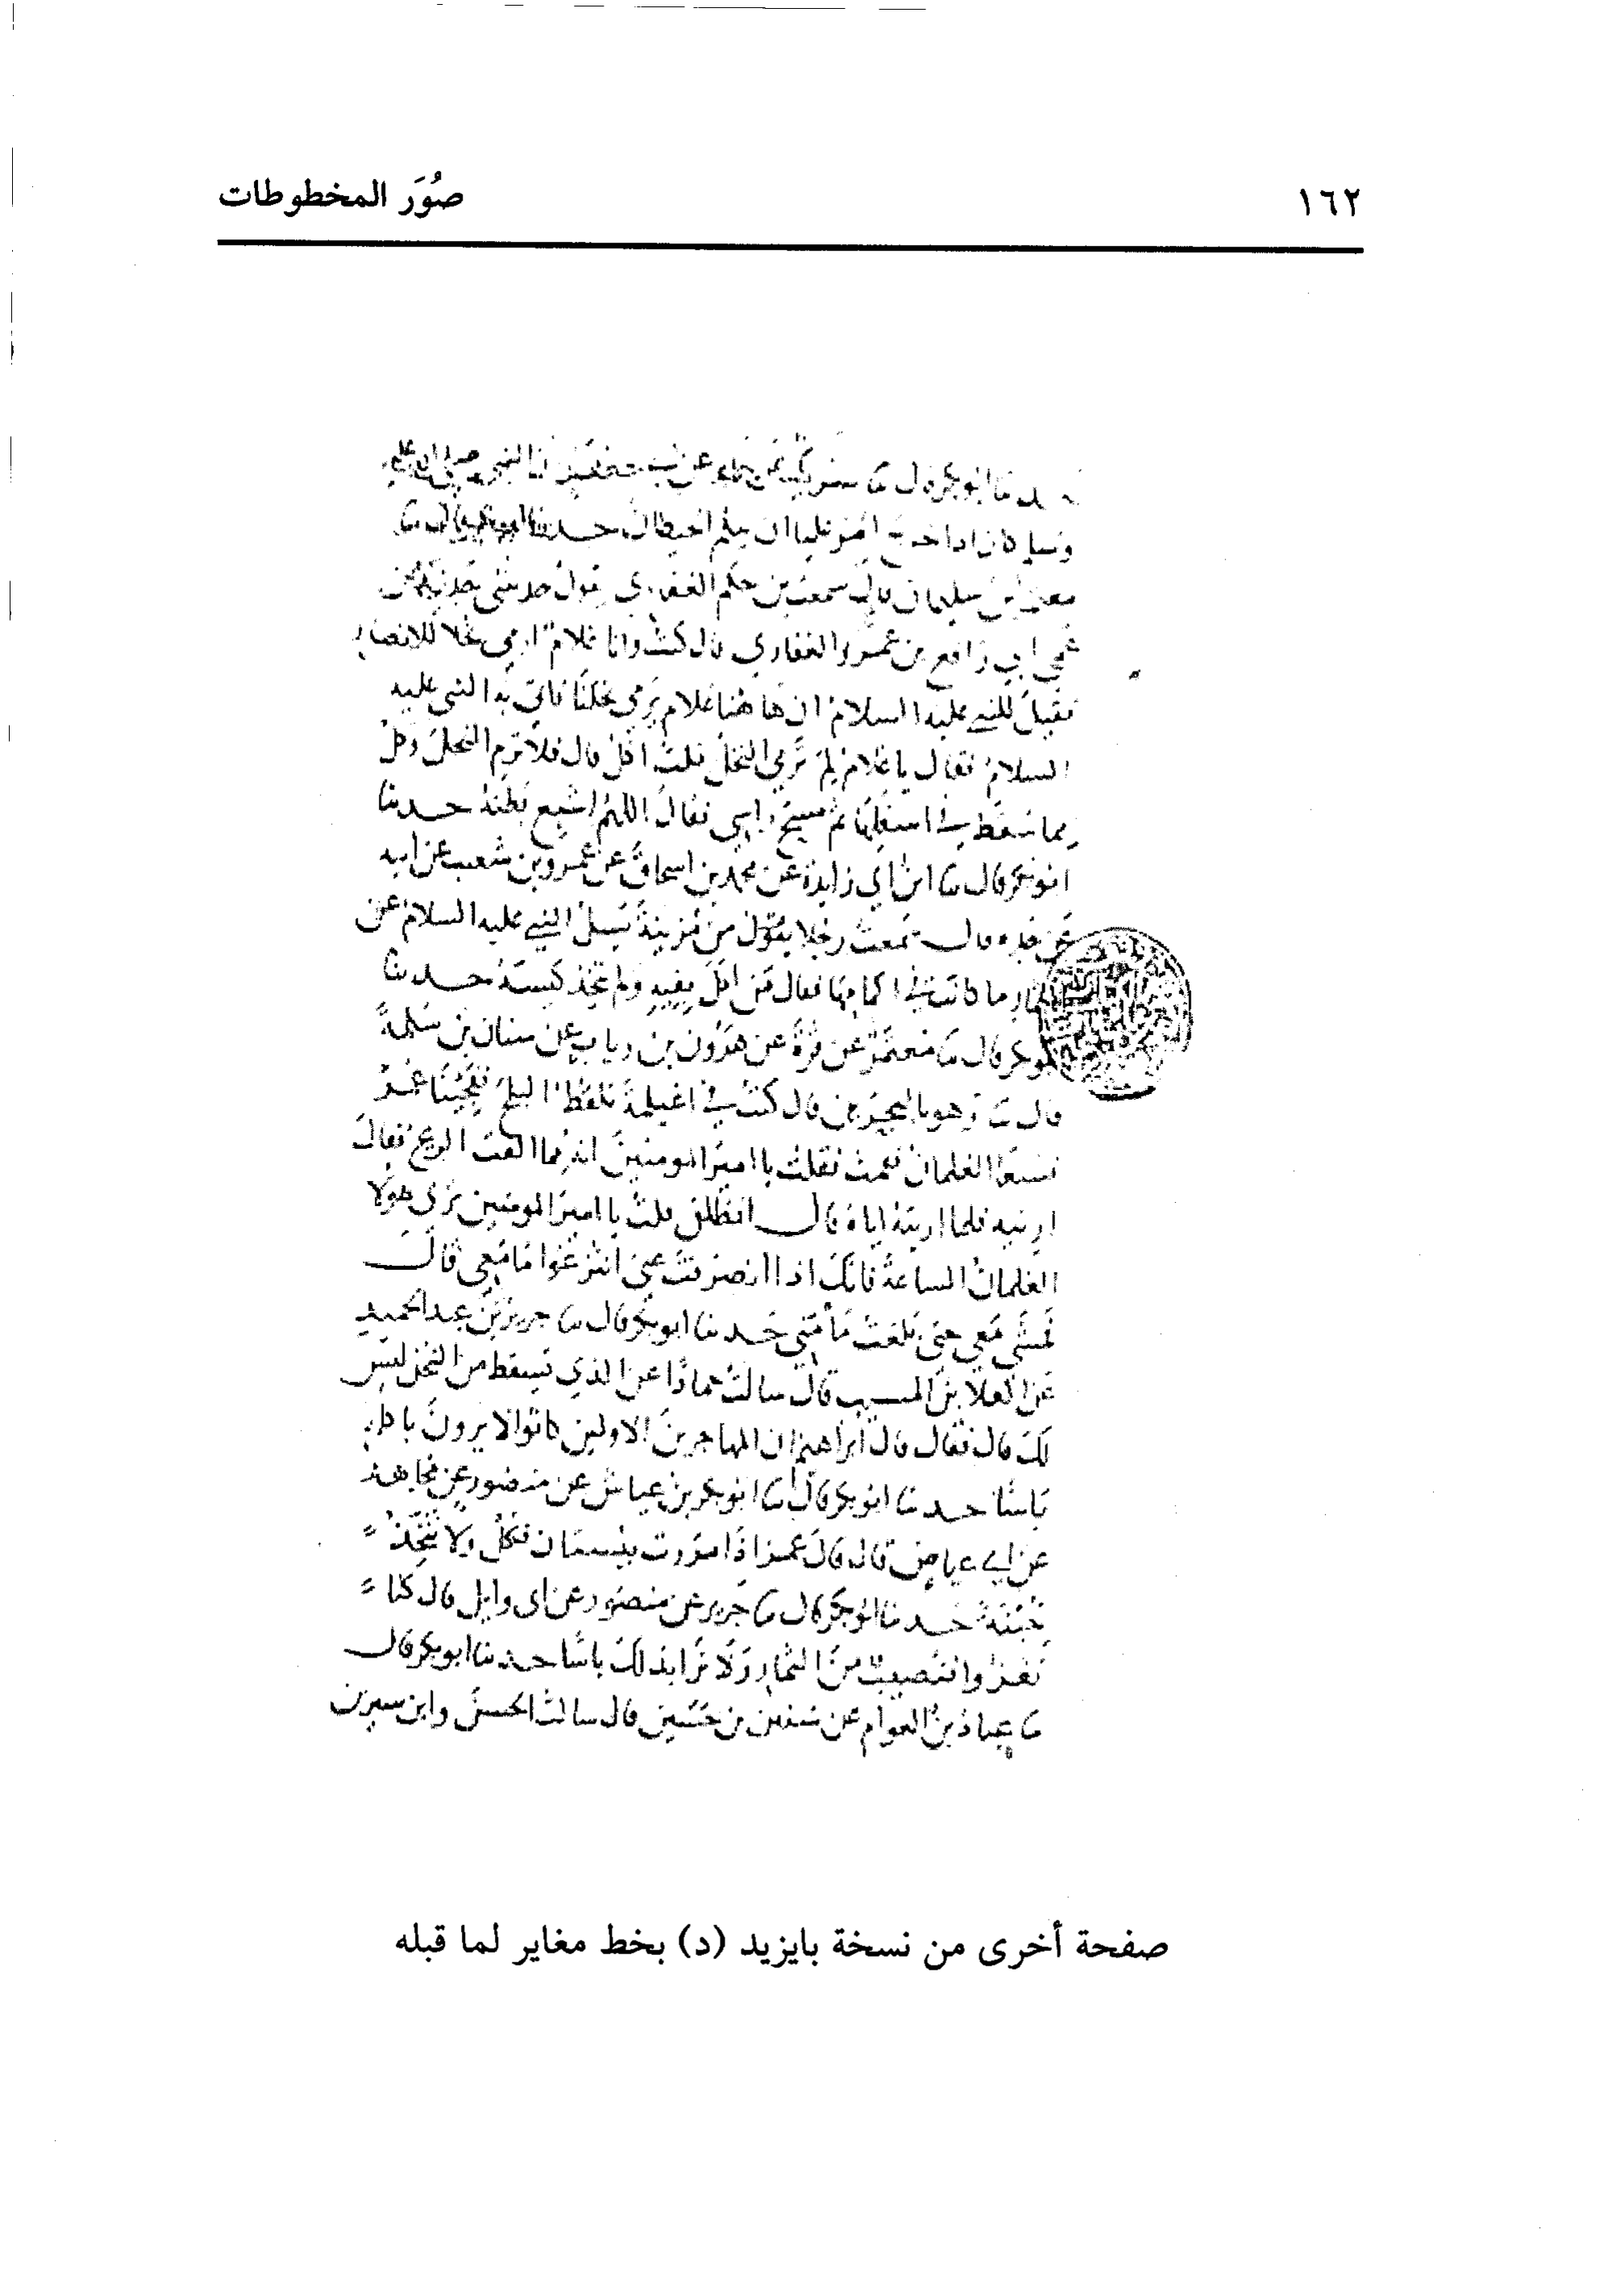 ١٦٢
صُوَر المخطوطات
حدثنا ابو بكر قال ثنا عن جعفر ان النبي صلى الله عليه
وسلم كان اذا حدثنا ابو بكر قال ثنا
معتمر بن سليمان قال سمعت بن حكم الغفاري يقول حدثتني جدتي عن
عمي ابي رافع بن عمرو الغفاري قال كنت وانا غلام ارمي نخلا للانصار
فقيل للنبي عليه السلام ان ها هنا غلام يرمي نخلنا فاتي به النبي عليه
السلام فقال يا غلام لم ترمي النخل قلت اكل قال فلا ترم النخل وكل
مما سقط في اسفلها ثم مسح راسي فقال اللهم اشبع بطنه حدثنا
ابو بكر قال ثنا ابن ابي زايدة عن محمد بن اسحاق عن عمرو بن شعيب عن ابيه
عن جده قال سمعت رجلا يقول من مزينة يسيل النبي عليه السلام عن
الثمار ما كانت في اكمامها فقال من اكل بفيه ولم يتخذ حدثنا
ابو بكر قال ثنا معتمر عن قرة عن هرون بن رياب عن سنان بن سلمة
قال ثنا وهو بالبحرين قال كنت في اغيلمة نلقط البلح ففجئنا عمر
فسعا الغلمان فقمت فقلت يا امير المومنين انه مما القت الريح فقال
ارنيه فلما اريته اياه قال انطلق قلت يا امير المومنين ترى هولا
الغلمان الساعة فانك اذا انصرفت عني انتزعوا ما معي قال
فمشى معي حتى بلغت مأمني حدثنا ابو بكر قال ثنا جرير بن عبد الحميد
عن العلا بن المسيب قال سالت حمادا عن الذي يسقط من النخل ليس
لك قال فقال قال ابراهيم ان المهاجرين الاولين كانوا لا يرون باكله
باسا حدثنا ابو بكر قال ثنا ابو بكر بن عياش عن منصور عن مجاهد
عن ابي عياض قال قال عمر اذا مررت ببستان فكل ولا تتخذ
خبنة حدثنا ابو بكر قال ثنا جرير عن منصور عن ابي وايل قال كنا
نغزوا فنصيب من الثمار ولا نرا بذلك باسا حدثنا ابو بكر قال
ثنا عباد بن العوام عن سفين بن حسين قال سالت الحسن وابن سيرين
صفحة أخرى من نسخة بايزيد (د) بخط مغاير لما قبله